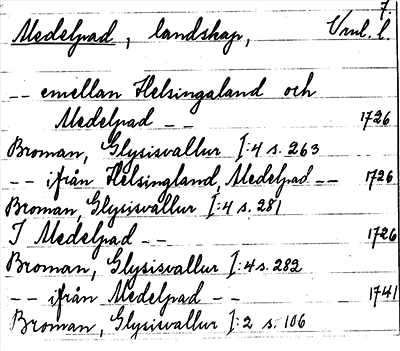 7.
Medelpad, landskap, Vml. l.
-- emellan Helsingaland och
Medelpad -- 1726
Broman, Glysisvallur I:4 s. 263
-- ifrån Helsingland, Medelpad -- 1726
Broman, Glysisvallur I:4 s. 281
I Medelpad -- 1726
Broman, Glysisvallur I:4 s. 282
-- ifrån Medelpad -- 1741
Broman, Glysisvallur I:2 s. 106